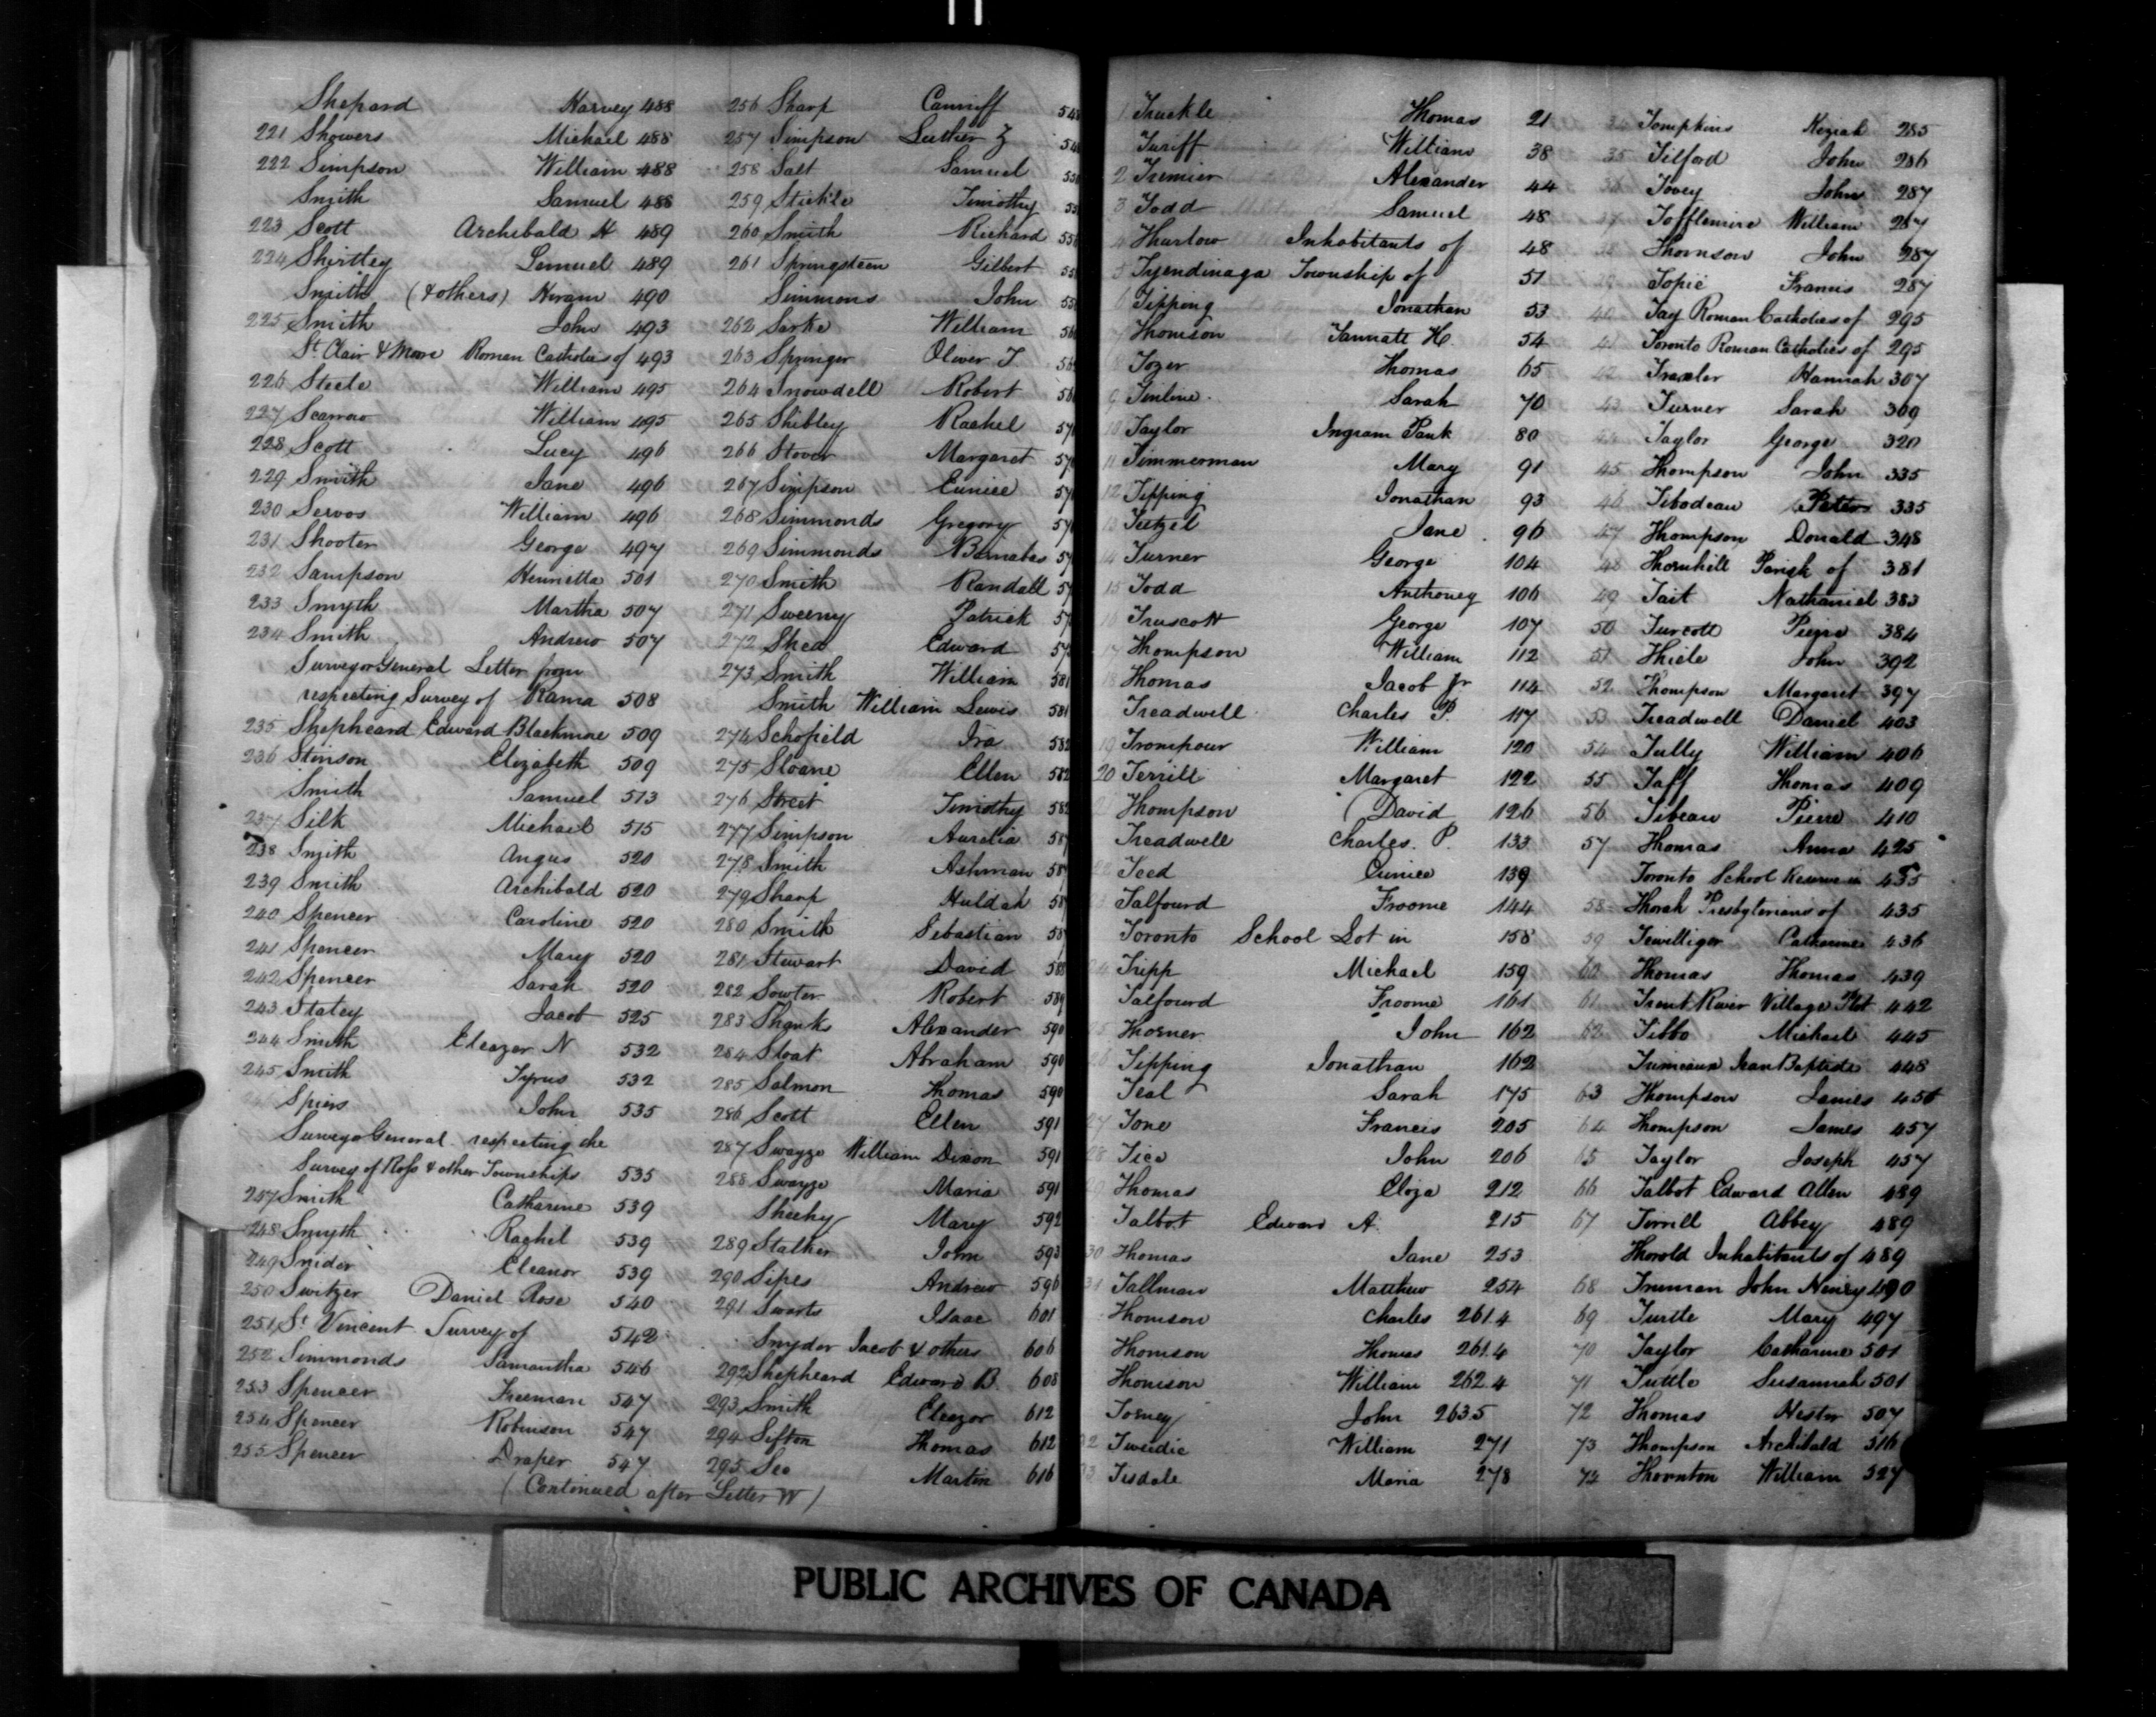 Shepard Harvey 488
221 Showers Michael 488
222 Simpson William 488
Smith Samuel 488
223 Scott Archibald H 489
224 Shirtley Lemuel 489
Smith (& others) Hiram 490
225 Smith John 493
St Clair & Moore Roman Catholics of 493
226 Steele William 495
227 Scarrow William 495
228 Scott Lucy 496
229 Smith Jane 496
230 Servos William 496
231 Shooter George 497
232 Sampson Henrietta 501
233 Smyth Martha 507
234 Smith Andrew 507
Surveyor General Letter from
respecting Survey of Rama 508
235 Shepheard Edward Blackmore 509
236 Stinson Elizabeth 509
Smith Samuel 513
237 Silk Michael 515
238 Smith Angus 520
239 Smith Archibald 520
240 Spencer Caroline 520
241 Spencer Mary 520
242 Spencer Sarah 520
243 Statey Jacob 525
244 Smith Eleazer N 532
245 Smith Tyrus 532
246 Spiers John 535
Surveyor General respecting the
Survey of Ross & other Townships 535
247 Smith Catharine 539
248 Smyth Rachel 539
249 Snider Eleanor 539
250 Switzer Daniel Rose 540
251 St Vincent Survey of 542
252 Simmonds Samantha 546
253 Spencer Freeman 547
254 Spencer Robinson 547
255 Spencer Draper 547
(Continued after Letter W)
256 Sharp Canniff
257 Simpson Luther Z
258 Salt Samuel
259 Stickle Timothy
260 Smith Richard
261 Springsteen Gilbert
Simmons John
262 Sarke William
263 Springer Oliver T
264 Snowdell Robert
265 Shibley Rachel
266 Stover Margaret
267 Simpson Eunice
268 Simmonds Gregory
269 Simmonds Barnabas
270 Smith Randall
271 Sweeny Patrick
272 Shea Edward
273 Smith William 581
Smith William Lewis 581
274 Schofield Ira 582
275 Sloane Ellen 582
276 Street Timothy 582
277 Simpson Aurelia 587
278 Smith Ashman
279 Sharp Huldah
280 Smith Sebastian
281 Stewart David 588
282 Sowter Robert 589
283 Shanks Alexander 590
284 Sloat Abraham 590
285 Salmon Thomas 590
286 Scott Ellen 591
287 Swayze William Dixon 591
288 Swayze Maria 591
Sheehy Mary 592
289 Stalker John 593
290 Sipes Andrew 596
291 Swarts Isaac 601
Snyder Jacob & others 606
292 Shepheard Edward B. 608
293 Smith Eleazor 612
294 Sifton Thomas 612
295 See Martin 616
1 Truckle Thomas 21
Turiff William 38
2 Tremier Alexander 44
3 Todd Samuel 48
4 Thurlow Inhabitants of 48
5 Tyendinaga Township of 51
6 Tipping Jonathan 53
7 Thomson Tannate H. 54
8 Tozer Thomas 65
9 Tinline Sarah 70
10 Taylor Ingram Pank 80
11 Timmerman Mary 91
12 Tipping Jonathan 93
13 Teetzel Jane 96
14 Turner George 104
15 Todd Anthoney 106
16 Truscott George 107
17 Thompson William 112
18 Thomas Jacob Jr 114
Treadwell Charles P. 117
19 Trompour William 120
20 Terrill Margaret 122
Thompson David 126
Treadwell Charles P. 133
Teed Eunice 139
23 Talfourd Froome 144
Toronto School Lot in 158
24 Tripp Michael 159
Talfourd Froome 161
25 Thorner John 162
26 Tipping Jonathan 162
Teal Sarah 175
27 Tone Francis 205
28 Tice John 206
29 Thomas Eloza 212
Talbot Edward A. 215
30 Thomas Jane 253
31 Tallman Matthew 254
Thomson Charles 261.4
Thomson Thomas 261.4
Thomson William 262.4
Torney John 263.5
32 Tweedie William 271
33 Tisdale Maria 278
34 Tompkins Keziah 285
35 Tilford John 286
36 Tovey John 287
37 Tofflemire William 287
38 Thomson John 287
39 Topie Francis 287
40 Tay Roman Catholics of 295
41 Toronto Roman Catholics of 295
42 Traxler Hannah 307
43 Turner Sarah 309
44 Taylor George 320
45 Thompson John 335
46 Tibodeau Peter 335
47 Thompson Donald 348
48 Thornhill Parish of 381
49 Tait Nathaniel 383
50 Turcott Pierre 384
51 Thiele John 392
52 Thompson Margaret 397
53 Treadwell Daniel 403
54 Tully William 406
55 Taff Thomas 409
56 Tibeau Pierre 410
57 Thomas Anna 425
Toronto School Reserve in 435
58 Thorah Presbyterians of 435
59 Tewilliger Catharine 436
60 Thomas Thomas 439
61 Trent River Village Plot 442
62 Tibbo Michael 445
Trimeaux Jean Baptiste 448
63 Thompson James 456
64 Thompson James 457
65 Taylor Joseph 457
66 Talbot Edward Allen 489
67 Tirrell Abbey 489
Thorold Inhabitants of 489
68 Truman John Henry 490
69 Turtle Mary 497
70 Taylor Catharine 501
71 Tuttle Susannah 501
72 Thomas Hester 507
73 Thompson Archibald 516
72 Thornton William 527
PUBLIC ARCHIVES OF CANADA